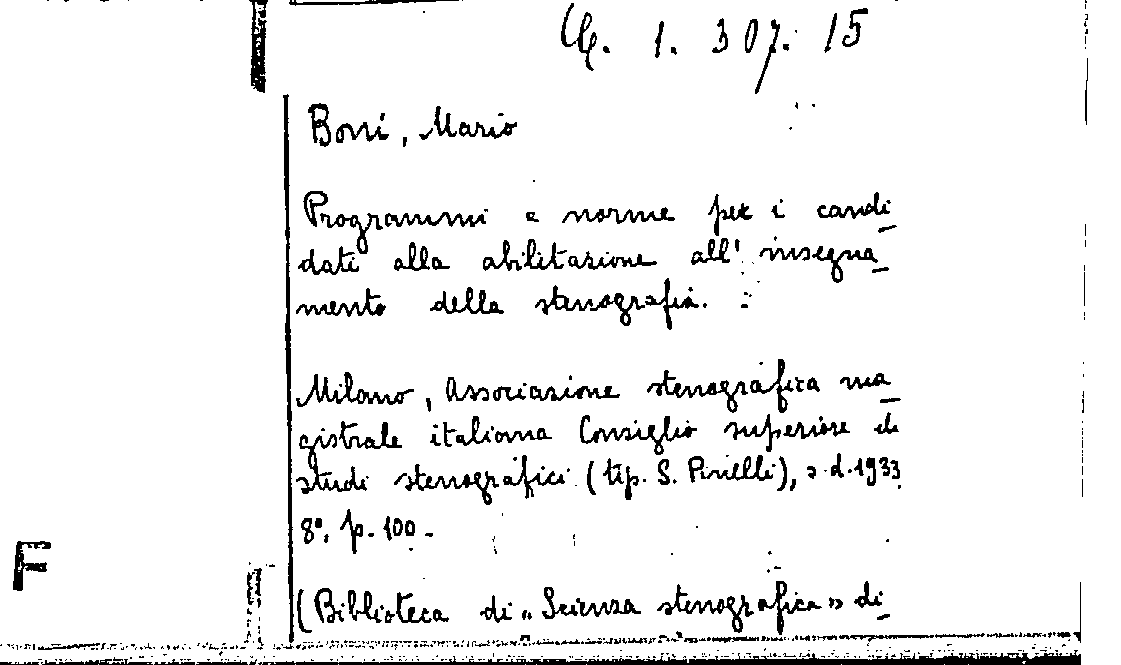 1. 307. 15
Boni, Mario
Programmi e norme per i candi_
dati alla abilitazione all' insegna_
mento della stenografia.
Milano, Associazione stenografica ma_
gistrale italiana Consiglio superiore di
studi stenografici (tip. S. Pinelli), s. d. 1933
8°, p. 100 -
(Biblioteca di "Scienza stenografica" di_
F